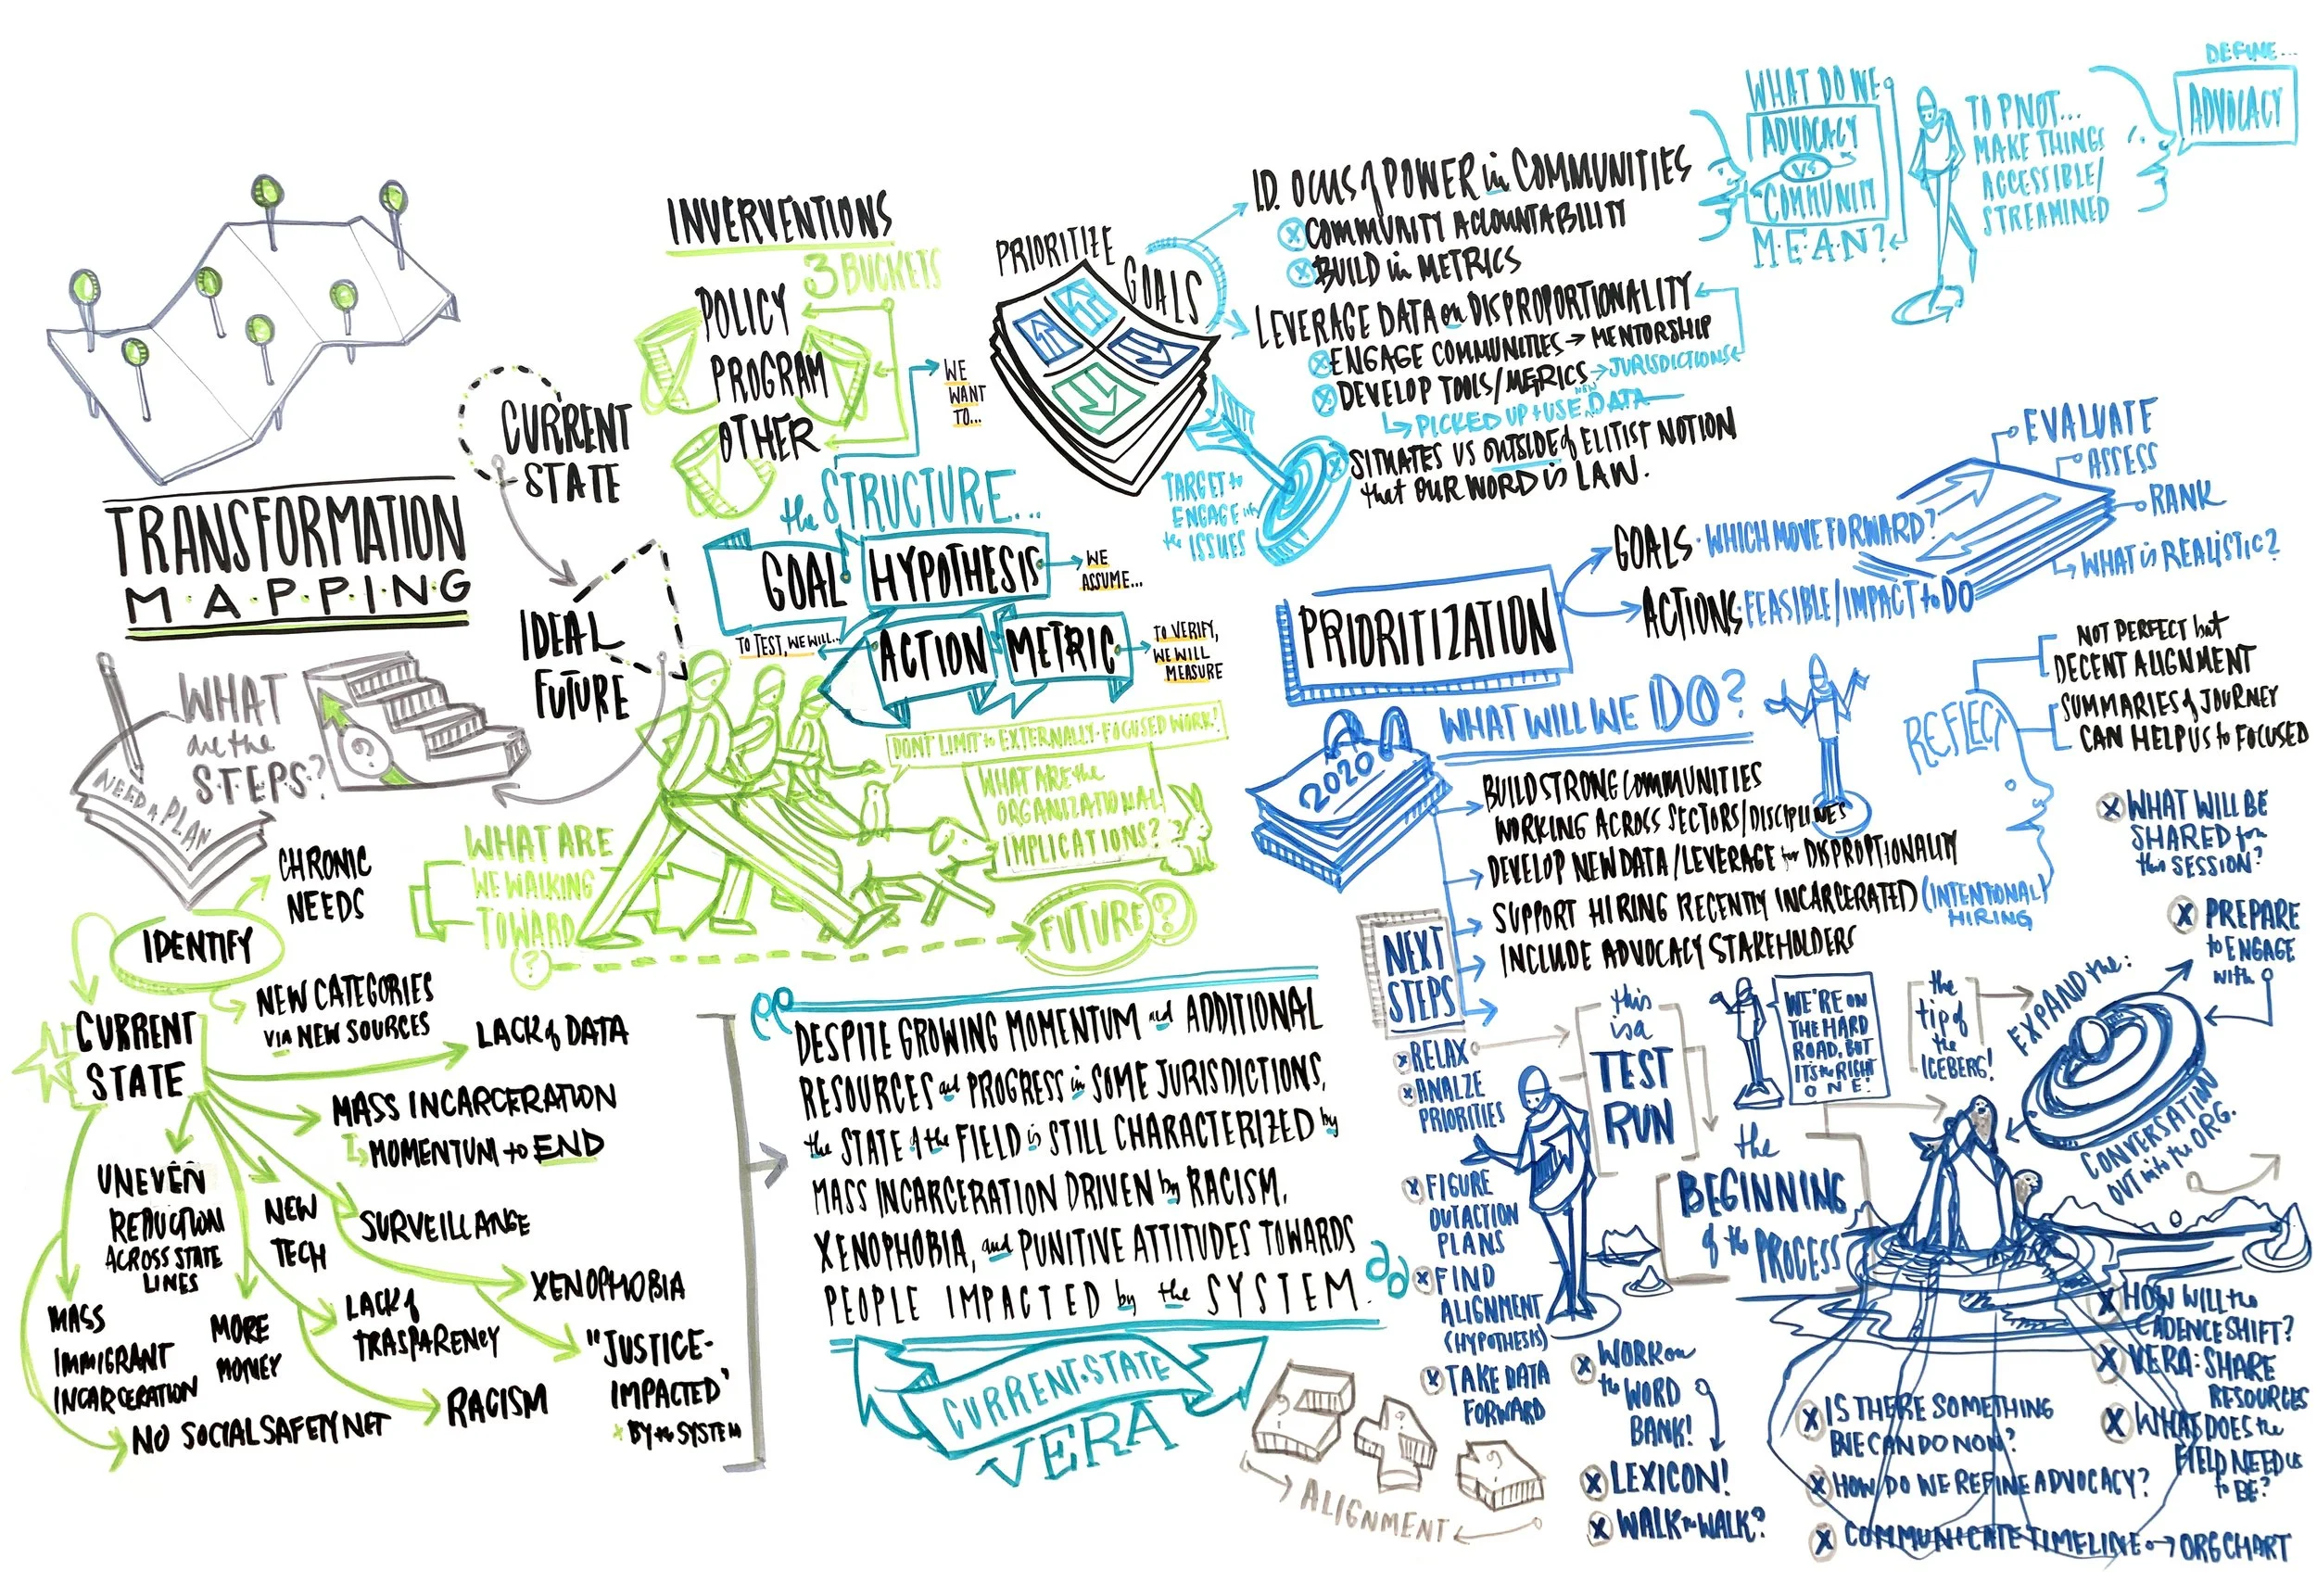 TRANSFORMATION
M·A·P·P·I·N·G
CURRENT
STATE
IDEAL
FUTURE
WHAT
are the
STEPS?
NEED A PLAN
IDENTIFY
CHRONIC
NEEDS
NEW CATEGORIES
VIA NEW SOURCES
CURRENT
STATE
LACK of DATA
MASS INCARCERATION
MOMENTUM to END
SURVEILLANCE
XENOPHOBIA
"JUSTICE-
IMPACTED"
BY the SYSTEM
NEW
TECH
LACK of
TRASPARENCY
RACISM
UNEVEN
REDUCTION
ACROSS STATE
LINES
MORE
MONEY
MASS
IMMIGRANT
INCARCERATION
NO SOCIAL SAFETY NET
INVERVENTIONS
3 BUCKETS
POLICY
PROGRAM
OTHER
the STRUCTURE...
WE
WANT
TO...
GOAL
HYPOTHESIS
WE
ASSUME...
TO TEST, WE WILL...
ACTION
METRIC
TO VERIFY,
WE WILL
MEASURE
DON'T LIMIT to EXTERNALLY-FOCUSED WORK!
WHAT ARE the
ORGANIZATIONAL
IMPLICATIONS?
WHAT ARE
WE WALKING
TOWARD
?
FUTURE?
DESPITE GROWING MOMENTUM and ADDITIONAL
RESOURCES and PROGRESS in SOME JURISDICTIONS,
the STATE of the FIELD is STILL CHARACTERIZED by
MASS INCARCERATION DRIVEN by RACISM,
XENOPHOBIA, and PUNITIVE ATTITUDES TOWARDS
PEOPLE IMPACTED by the SYSTEM.
CURRENT·STATE
VERA
PRIORITIZE
GOALS
I.D. OCUS of POWER in COMMUNITIES
COMMUNITY ACCOUNTABILITY
BUILD in METRICS
LEVERAGE DATA on DISPROPORTIONALITY
ENGAGE COMMUNITIES → MENTORSHIP
DEVELOP TOOLS/METRICS → JURISDICTIONS
PICKED UP + USE NEW DATA
SITUATES US OUTSIDE of ELITIST NOTION
that OUR WORD is LAW.
TARGET to
ENGAGE in
the ISSUES
WHAT DO WE
ADVOCACY
VS
COMMUNITY
M·E·A·N?
TO PIVOT...
MAKE THINGS
ACCESSIBLE/
STREAMINED
DEFINE...
ADVOCACY
PRIORITIZATION
GOALS· WHICH MOVE FORWARD?
ACTIONS· FEASIBLE/IMPACT to DO
EVALUATE
ASSESS
RANK
WHAT is REALISTIC?
WHAT WILL WE DO?
2020
BUILD STRONG COMMUNITIES
WORKING ACROSS SECTORS/DISCIPLINES
DEVELOP NEW DATA/LEVERAGE for DISPROPTIONALITY
SUPPORT HIRING RECENTLY INCARCERATED (INTENTIONAL)
HIRING
INCLUDE ADVOCACY STAKEHOLDERS
REFLECT
NOT PERFECT but
DECENT ALIGNMENT
SUMMARIES of JOURNEY
CAN HELP US to FOCUSED
WHAT WILL BE
SHARED from
this SESSION?
PREPARE
to ENGAGE
with
NEXT
STEPS
RELAX
ANALZE
PRIORITIES
FIGURE
OUT ACTION
PLANS
FIND
ALIGNMENT
(HYPOTHESIS)
TAKE DATA
FORWARD
this
is a
TEST
RUN
WE'RE ON
THE HARD
ROAD, BUT
IT'S the RIGHT
ONE!
the
tip of
the
ICEBERG!
EXPAND the:
CONVERSATIN
OUT into the ORG.
the
BEGINNING
of the PROCESS
WORK on
the WORD
BANK!
LEXICON!
WALK the WALK?
ALIGNMENT
IS THERE SOMETHING
WE CAN DO NOW?
HOW DO WE REFINE ADVOCACY?
COMMUNICATE TIMELINE → ORG CHART
HOW WILL the
CADENCE SHIFT?
VERA: SHARE
RESOURCES
WHAT DOES the
FIELD NEED US
to BE?